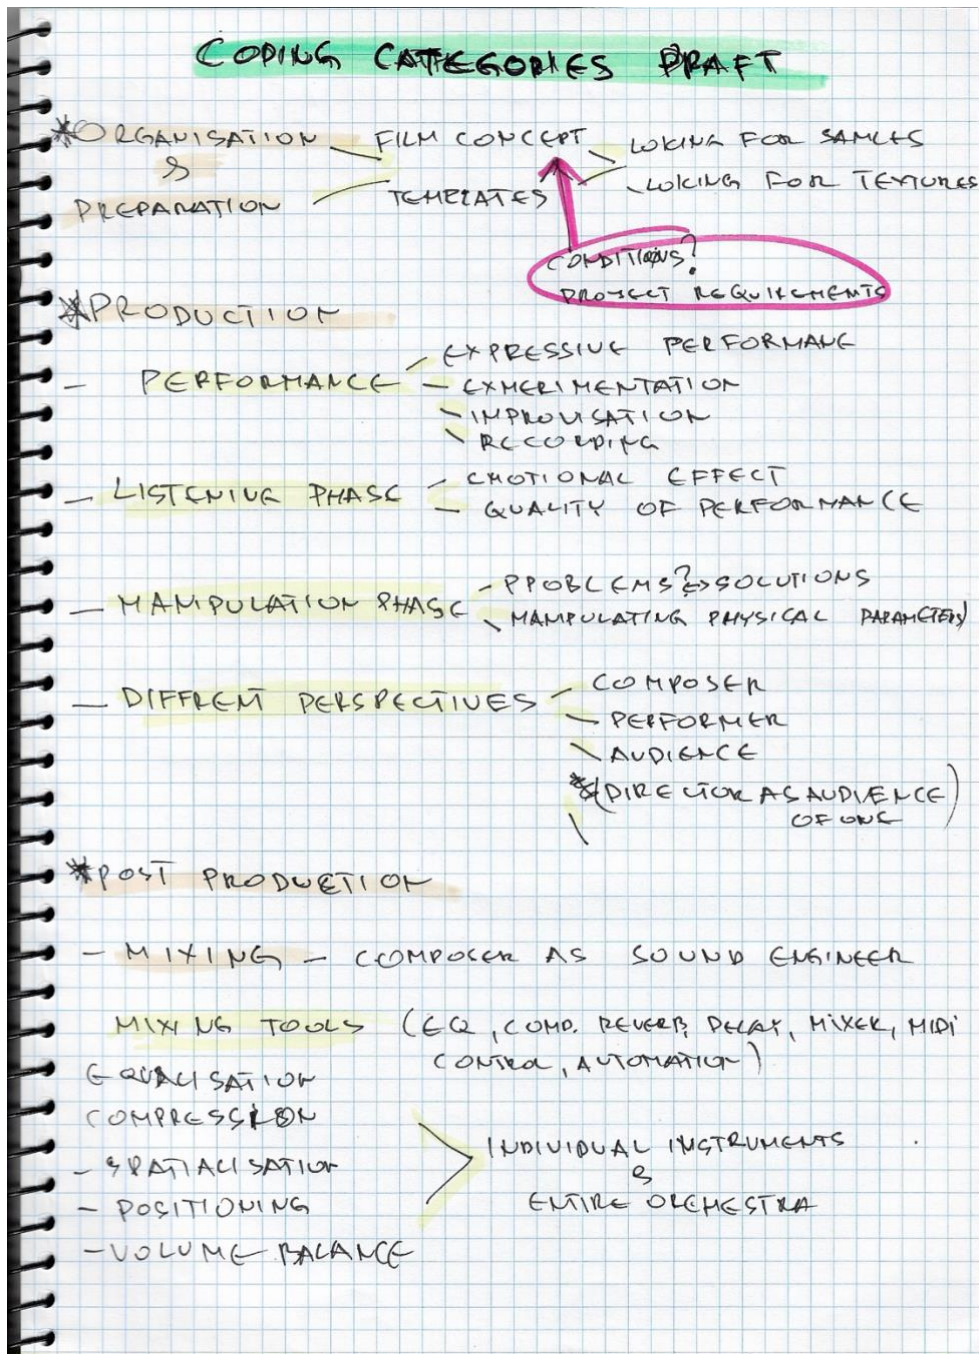 CODING CATEGORIES DRAFT
*ORGANISATION FILM CONCEPT LOKING FOR SAMLES
& TEMPLATES LOKING FOR TEXTURES
PREPARATION
CONDITIONS?
PROJECT REQUIREMENTS
*PRODUCTION
- PERFORMANCE - EXPRESSIVE PERFORMANE
- EXMERIMENTATION
- IMPROVISATION
- RECORDING
- LISTENING PHASE - EMOTIONAL EFFECT
- QUALITY OF PERFORMANCE
- MANIPULATION PHASE - PROBLEMS? → SOLUTIONS
- MANIPULATING PHYSICAL PARAMETERS
- DIFFRENT PERSPECTIVES - COMPOSER
- PERFORMER
- AUDIENCE
*(DIRECTOR AS AUDIENCE)
OF ONE
*POST PRODUCTION
- MIXING - COMPOSER AS SOUND ENGINEER
MIXING TOOLS (EQ, COMP. REVERB, DELAY, MIXER, MIDI
CONTROL, AUTOMATION)
EQUALISATION
COMPRESSION
- SPATIALISATION
- POSITIONING
- VOLUME BALANCE
INDIVIDUAL INSTRUMENTS
&
ENTIRE ORCHESTRA